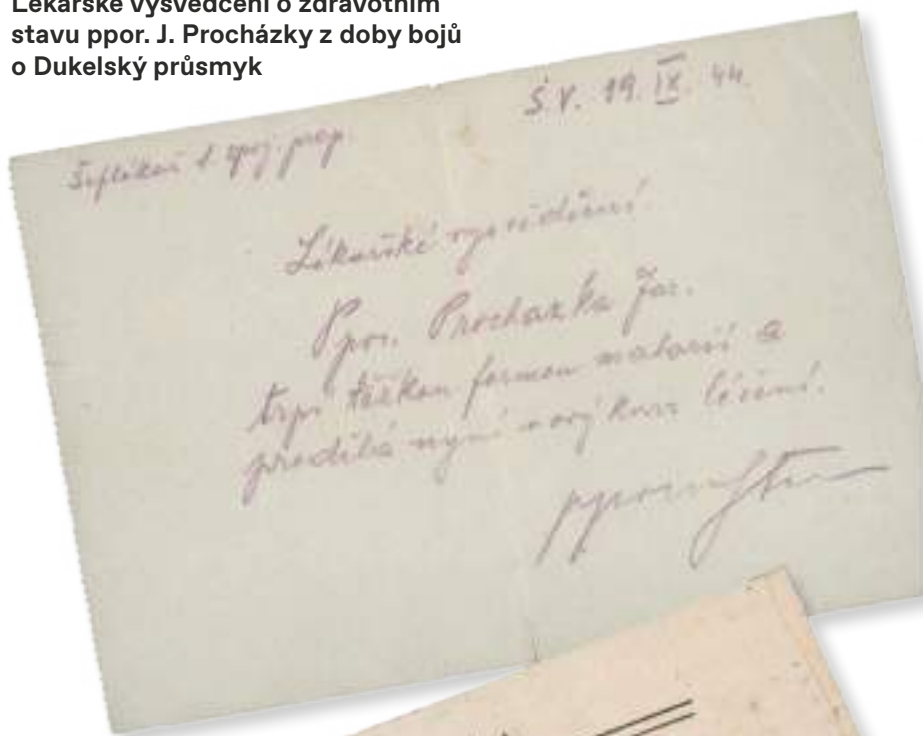 Lékařské vysvědčení o zdravotním
stavu ppor. J. Procházky z doby bojů
o Dukelský průsmyk
Š.V. 19. IX. 44.
Šeflékař 1 spoj. prap.
Lékařské vysvědčení.
Ppor. Prochazka Jar.
trpí těžkou formou malarií a
prodělá nyní nový kurs léčení.
ppor